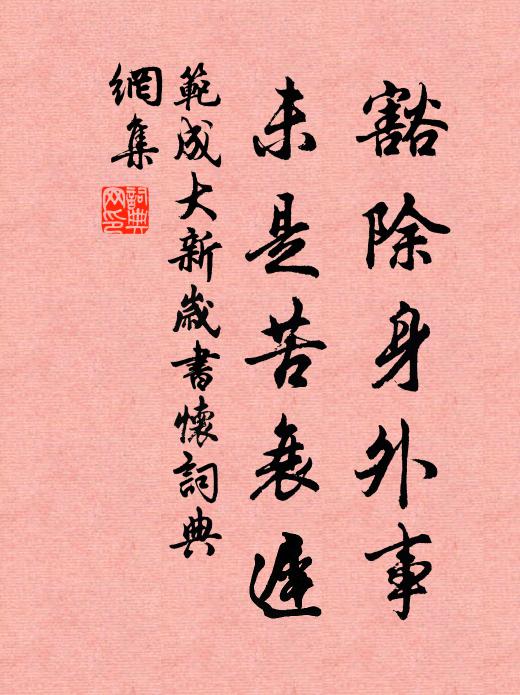 豁除身外事
未是苦衰遲
範成大新歲書懷詞典
網集
詞典
網印